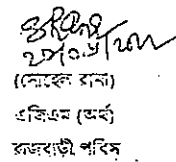 (সোহেল রানা)
এজিএম (অর্থ)
রাজবাড়ী পবিস